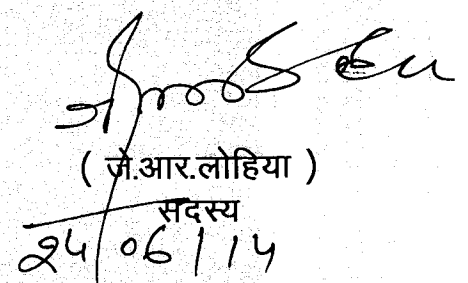 ( जे.आर.लोहिया )
सदस्य
24/06/14